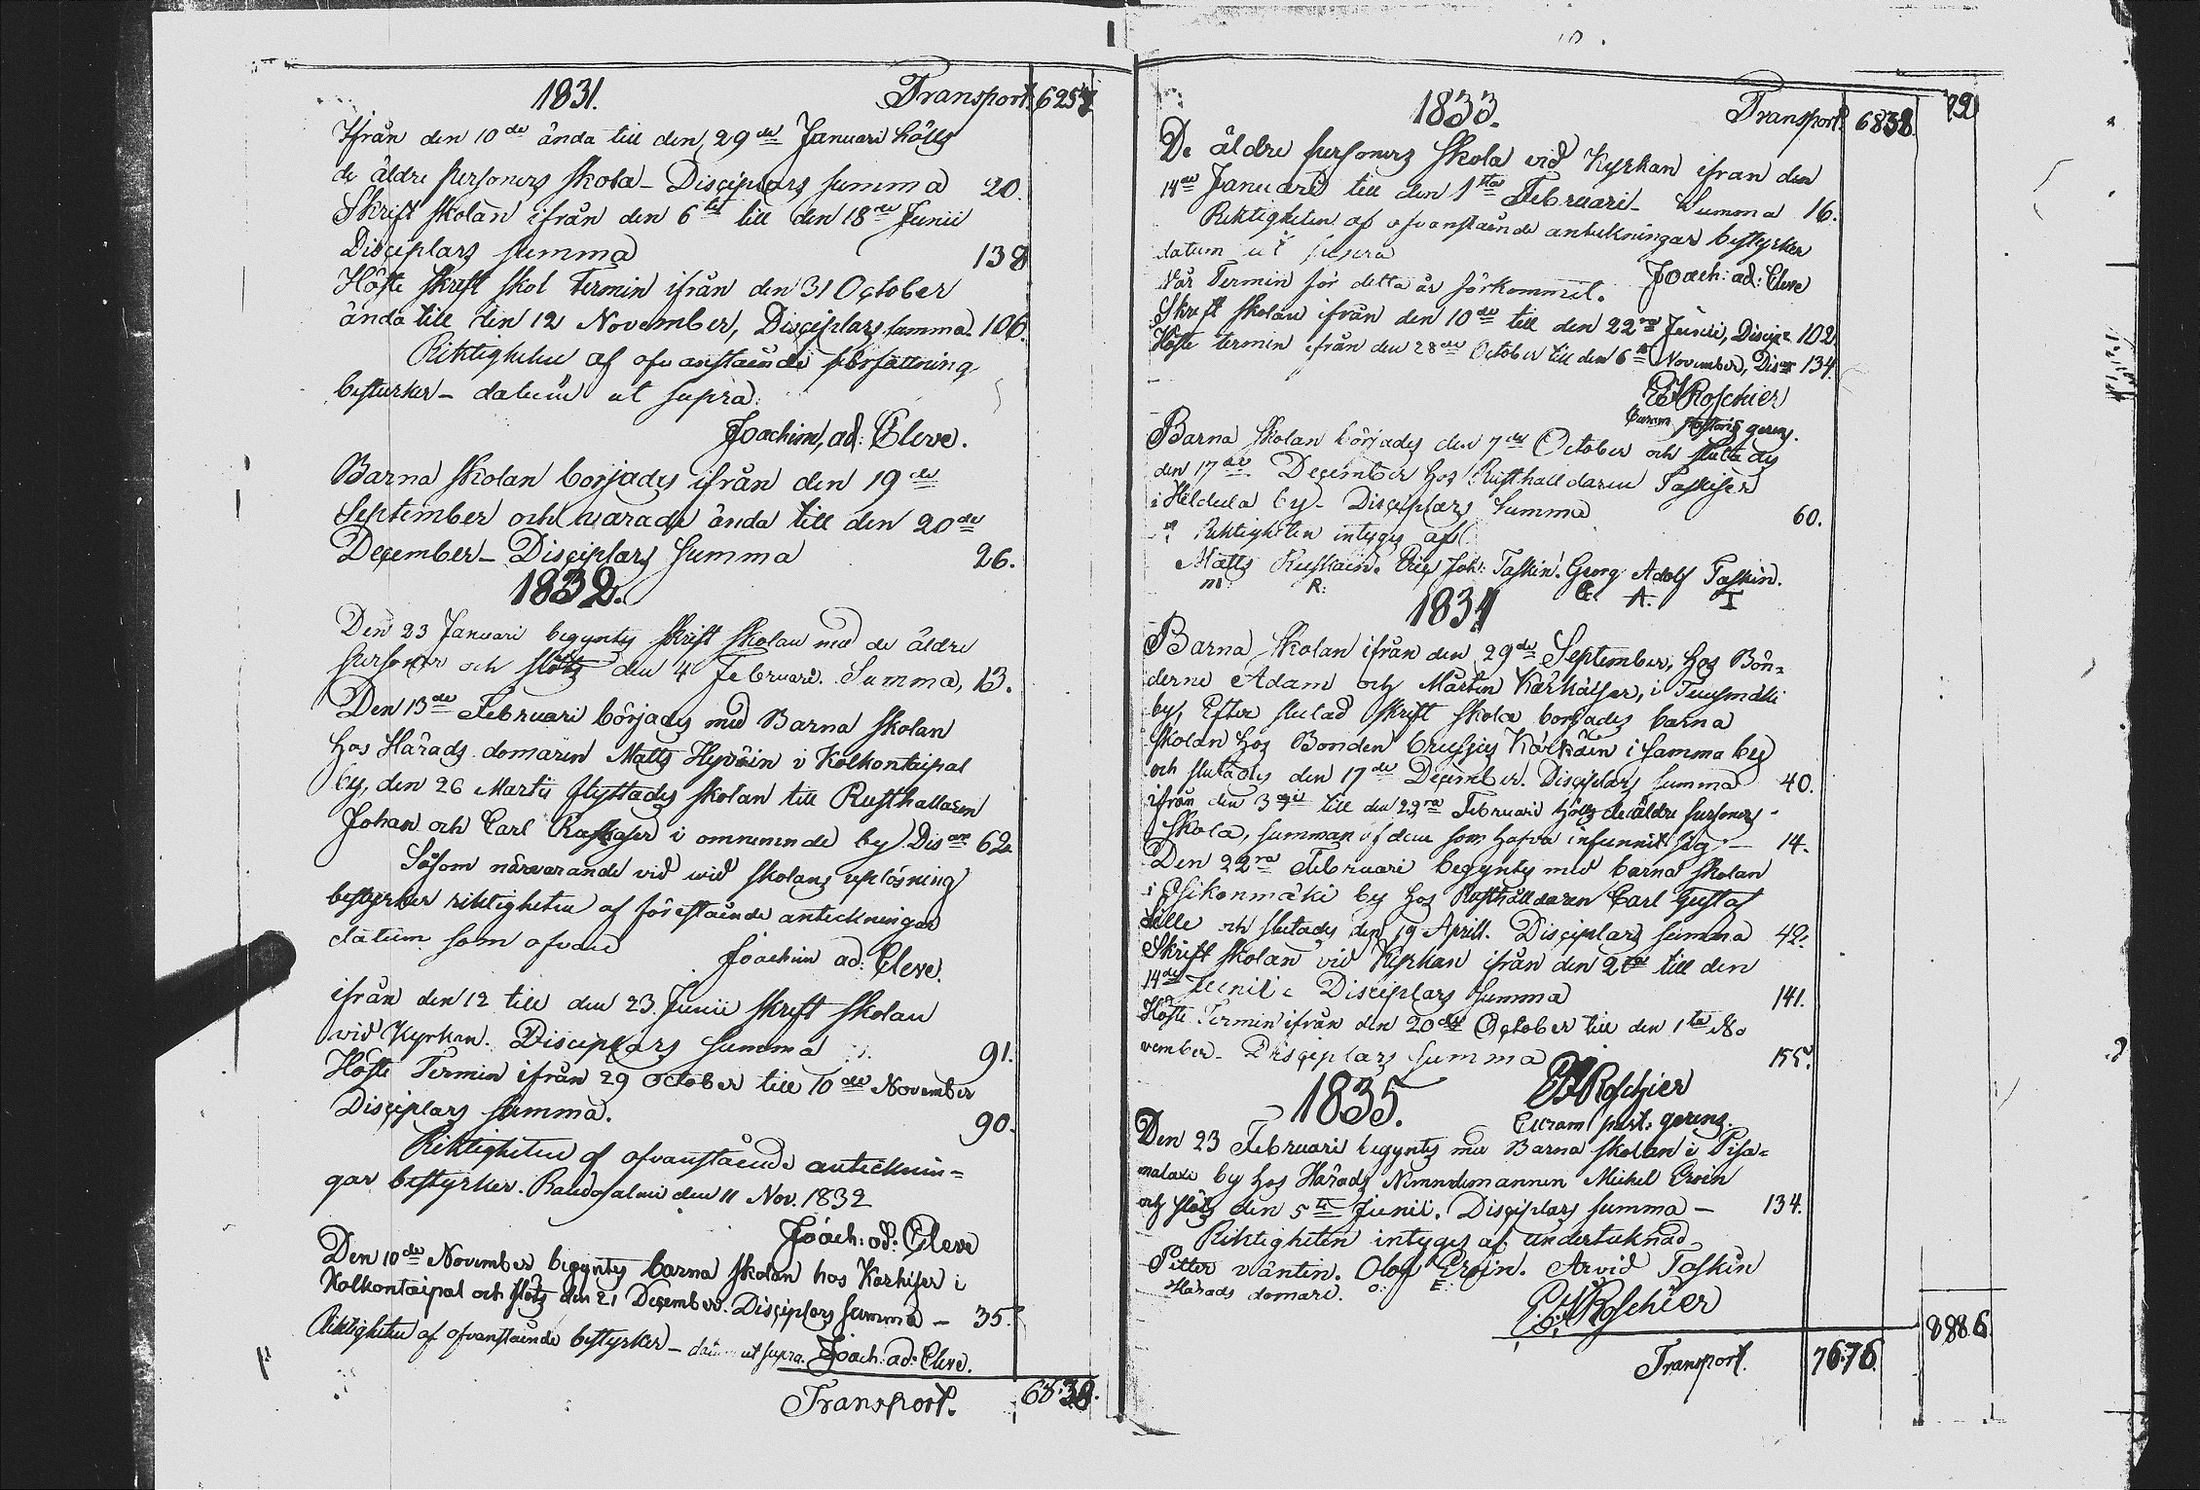 1831. Transport 6257
Ifrån den 10de ända till den 29de Januari hölts
de äldre personers skola – Disciplars summa 20.
Skrift skolan ifrån den 6te till den 18de Junii
Disciplars summa 138
Höste skrift skol Termin ifrån den 31 October
ända till den 12 November, Disciplars summa 106.
Riktigheten af ofvanstående författning
bestyrker – datum ut supra.
Joachim, ad: Cleve.
Barna skolan börjades ifrån den 19de
September och varade ända till den 20de
December – Disciplars Summa 26.
1832.
Den 23 Januari begyntes skrift skolan med de äldre
personer och slöts den 4 Februari. Summa, 13.
Den 13de Februari börjades med Barna skolan
hos Härads domaren Matts Hyvöin i Kolkontaipal
by, den 26 Martii flyttades skolan till Rusthallaren
Johan och Carl i omnemnde by Disar 62
Såsom närvarande vid wid skolans uplösning
bestyrker riktigheten af förestående anteckningar
datum som ofvan Joachim ad: Cleve.
ifrån den 12 till den 23 Junii skrift skolan
vid Kyrkan. Disciplars summa 91.
Höste Termin ifrån 29 October till 10de November
Disciplars summa. 90.
Riktigheten af ofvanstående antecknin=
gar bestyrker. Randasalmi den 11 Nov. 1832
Joach: ad: Cleve
Den 10de November begyntes barna skolan hos Karhiser i
Kolkontaipal och slöts den 21 December. Disciplars summa – 35.
Riktigheten af ofvanstående bestyrker – datum ut supra. Joach: ad: Cleve.
Transport. 6838.
1833. Transport. 6838
De äldre personers skola vid Kyrkan ifran den
14de Januarii till den 1sta Februari – Summa 16.
Riktigheten af ofvanstående antekningar bestyrker
datum ut supra Joach: ad: Cleve
Vår Termin för detta år förkommit.
Skrift skolan ifrån den 10de till den 22ra Junii, Discip: 102
Höste termin ifrån den 28de October till den 6te November, Disar 134.
Roschier
Curam pastoris gerens.
Barna skolan börjades den 7de October och slutades
den 17de December hos Rusthalldaren Taskiser
i by – Disciplars Summa 60.
Riktigheten intyges af
Matts Ruskain. Eric Joh: Taskin. Georg Adolf Taskin.
m R: G. A. T
1834
Barna skolan ifrån den 29de September, hos Bön=
derne Adam och Mårten Kärkäiser, i Tuusmäki
by, Efter slutad skrift skola börjades barna
skolan hos Bonden Kärkäin i samma by
och slutades den 17de December. Disciplars summa 40.
ifrån den 3 till den 22ra Februari hölts de äldre personers
skola, summan af dem som hafva infunnit sig – 14.
Den 22ra Februari begyntes med barna skolan
i Osikonmäki by hos Rusthålldaren Carl Gustaf
och slutades den 19 Aprill. Disciplars summa 42.
Skrift skolan vid Kyrkan ifrån den 2dra till den
14de Junii. Disciplars summa 141.
Höste Termin ifrån den 20de October till den 1ta No
vember – Disciplars summa 155.
Roschier
1835. Curam past: gerens.
Den 23 Februari begyntes med Barna skolan i Pisa=
malaxi by hos Härads Nimndemannen Michel Eroin
och slöts den 5te Junii. Disciplars summa – 134.
Riktigheten intyges af undertecknad
Pitter väntin. Olof Eroin. Arvid Taskin
Härads domare. O: E:
Roschier
8886.
Transport. 7676.